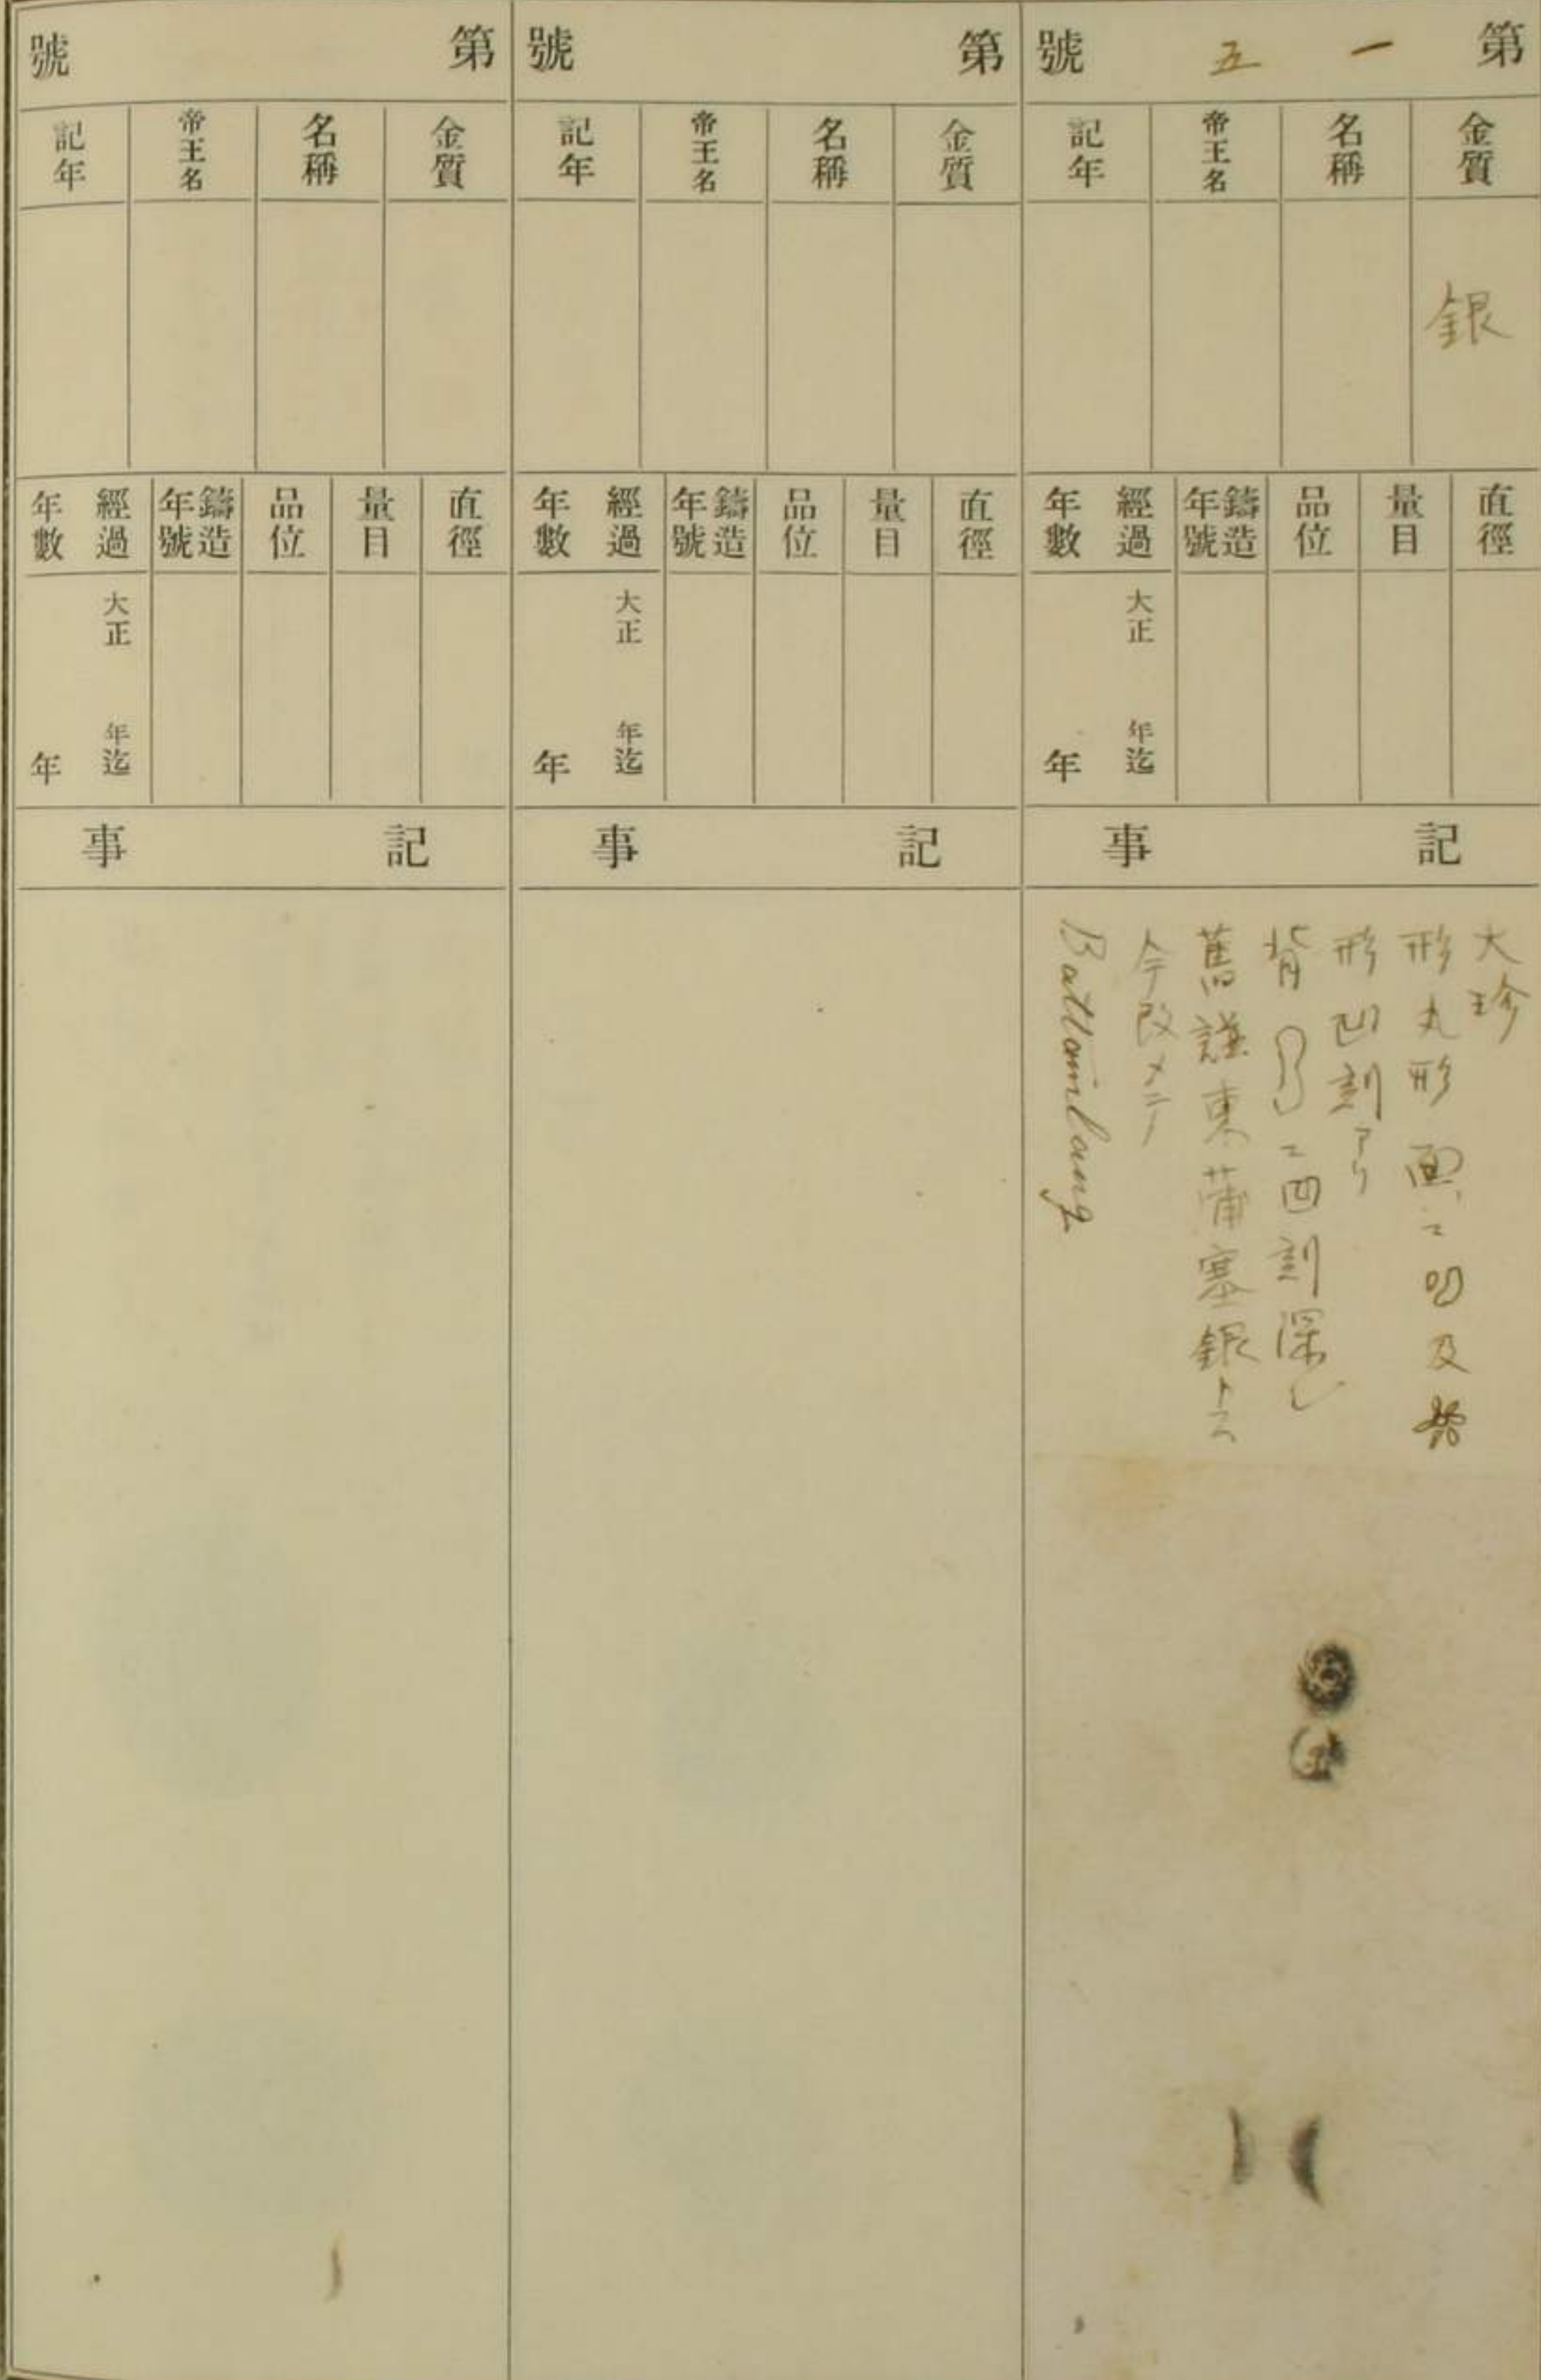 第一五號
金質
名稱
帝王名
記年
銀
直徑
量目
品位
鑄造年號
經過年數
大正 年迄
年
記事
大珍
形丸形面ニ 及
形凹刻アリ
背 ニ凹刻深シ
舊譜東蒲塞銀ト云
今改メテ
Battambang
第 號
金質
名稱
帝王名
記年
直徑
量目
品位
鑄造年號
經過年數
大正 年迄
年
記事
第 號
金質
名稱
帝王名
記年
直徑
量目
品位
鑄造年號
經過年數
大正 年迄
年
記事